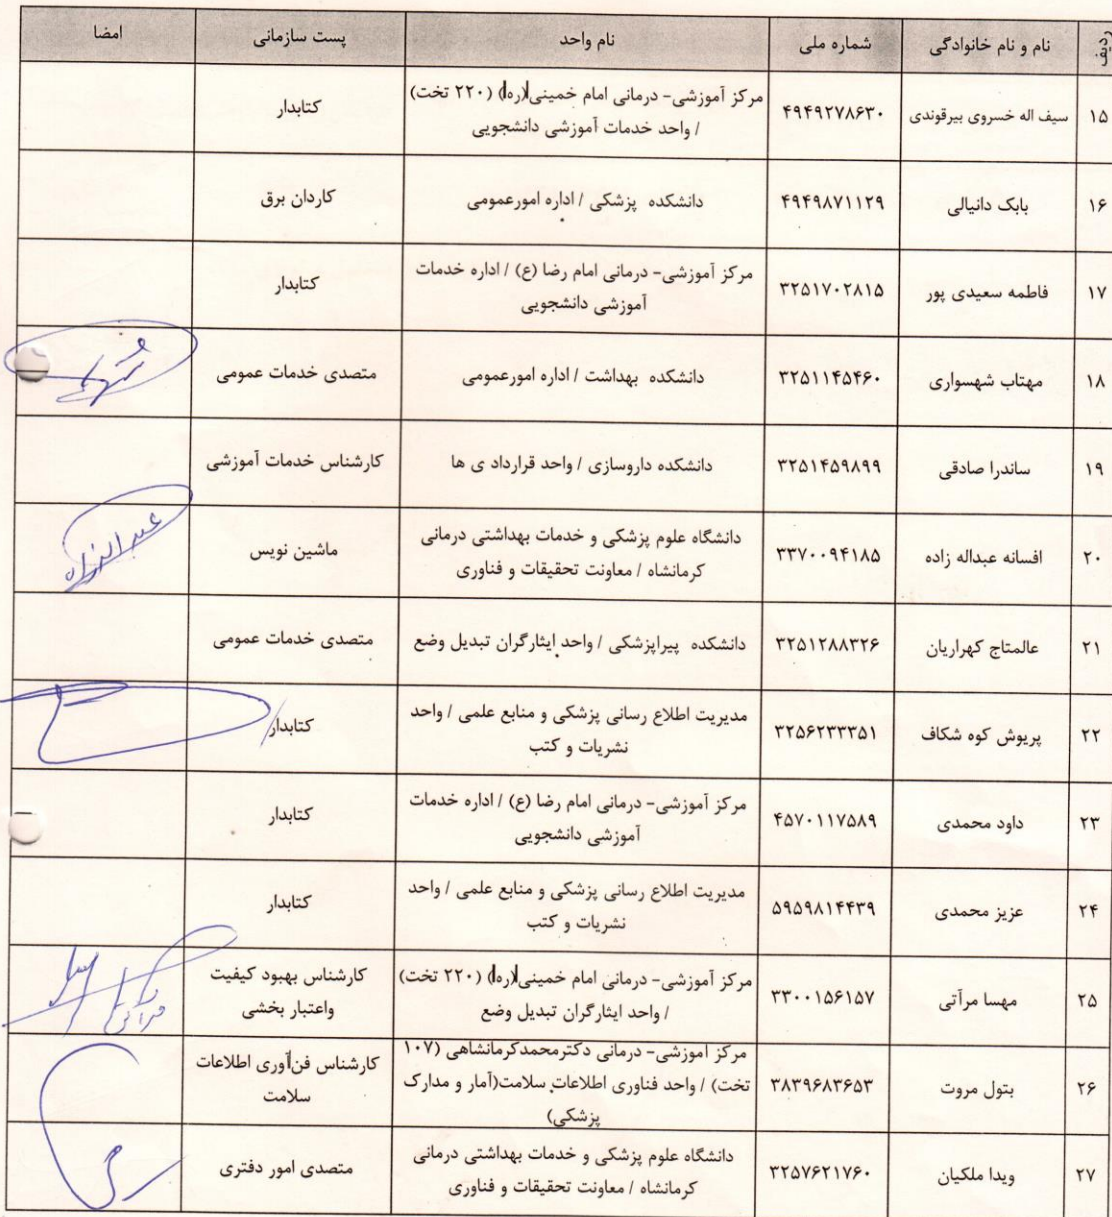 ردیف نام و نام خانوادگی شماره ملی نام واحد پست سازمانی امضا
۱۵ سیف اله خسروی بیرقوندی ۴۹۴۹۲۷۸۶۳۰ مرکز آموزشی- درمانی امام خمینی(ره) (۲۲۰ تخت) کتابدار
/ واحد خدمات آموزشی دانشجویی
۱۶ بابک دانیالی ۴۹۴۹۸۷۱۱۲۹ دانشکده پزشکی / اداره امورعمومی کاردان برق
۱۷ فاطمه سعیدی پور ۳۲۵۱۷۰۲۸۱۵ مرکز آموزشی- درمانی امام رضا (ع) / اداره خدمات کتابدار
آموزشی دانشجویی
۱۸ مهتاب شهسواری ۳۲۵۱۱۴۵۴۶۰ دانشکده بهداشت / اداره امورعمومی متصدی خدمات عمومی
۱۹ ساندرا صادقی ۳۲۵۱۴۵۹۸۹۹ دانشکده داروسازی / واحد قرارداد ی ها کارشناس خدمات آموزشی
۲۰ افسانه عبداله زاده ۳۳۷۰۰۹۴۱۸۵ دانشگاه علوم پزشکی و خدمات بهداشتی درمانی ماشین نویس
کرمانشاه / معاونت تحقیقات و فناوری
۲۱ عالمتاج کهراریان ۳۲۵۱۲۸۸۳۲۶ دانشکده پیراپزشکی / واحد ایثارگران تبدیل وضع متصدی خدمات عمومی
۲۲ پریوش کوه شکاف ۳۲۵۶۲۳۳۳۵۱ مدیریت اطلاع رسانی پزشکی و منابع علمی / واحد کتابدار
نشریات و کتب
۲۳ داود محمدی ۴۵۷۰۱۱۷۵۸۹ مرکز آموزشی- درمانی امام رضا (ع) / اداره خدمات کتابدار
آموزشی دانشجویی
۲۴ عزیز محمدی ۵۹۵۹۸۱۴۴۳۹ مدیریت اطلاع رسانی پزشکی و منابع علمی / واحد کتابدار
نشریات و کتب
۲۵ مهسا مرآتی ۳۳۰۰۱۵۶۱۵۷ مرکز آموزشی- درمانی امام خمینی(ره) (۲۲۰ تخت) کارشناس بهبود کیفیت
/ واحد ایثارگران تبدیل وضع واعتبار بخشی
۲۶ بتول مروت ۳۸۳۹۶۸۳۶۵۳ مرکز آموزشی- درمانی دکترمحمدکرمانشاهی (۱۰۷ کارشناس فنآوری اطلاعات
تخت) / واحد فناوری اطلاعات سلامت(آمار و مدارک سلامت
پزشکی)
۲۷ ویدا ملکیان ۳۲۵۷۶۲۱۷۶۰ دانشگاه علوم پزشکی و خدمات بهداشتی درمانی متصدی امور دفتری
کرمانشاه / معاونت تحقیقات و فناوری